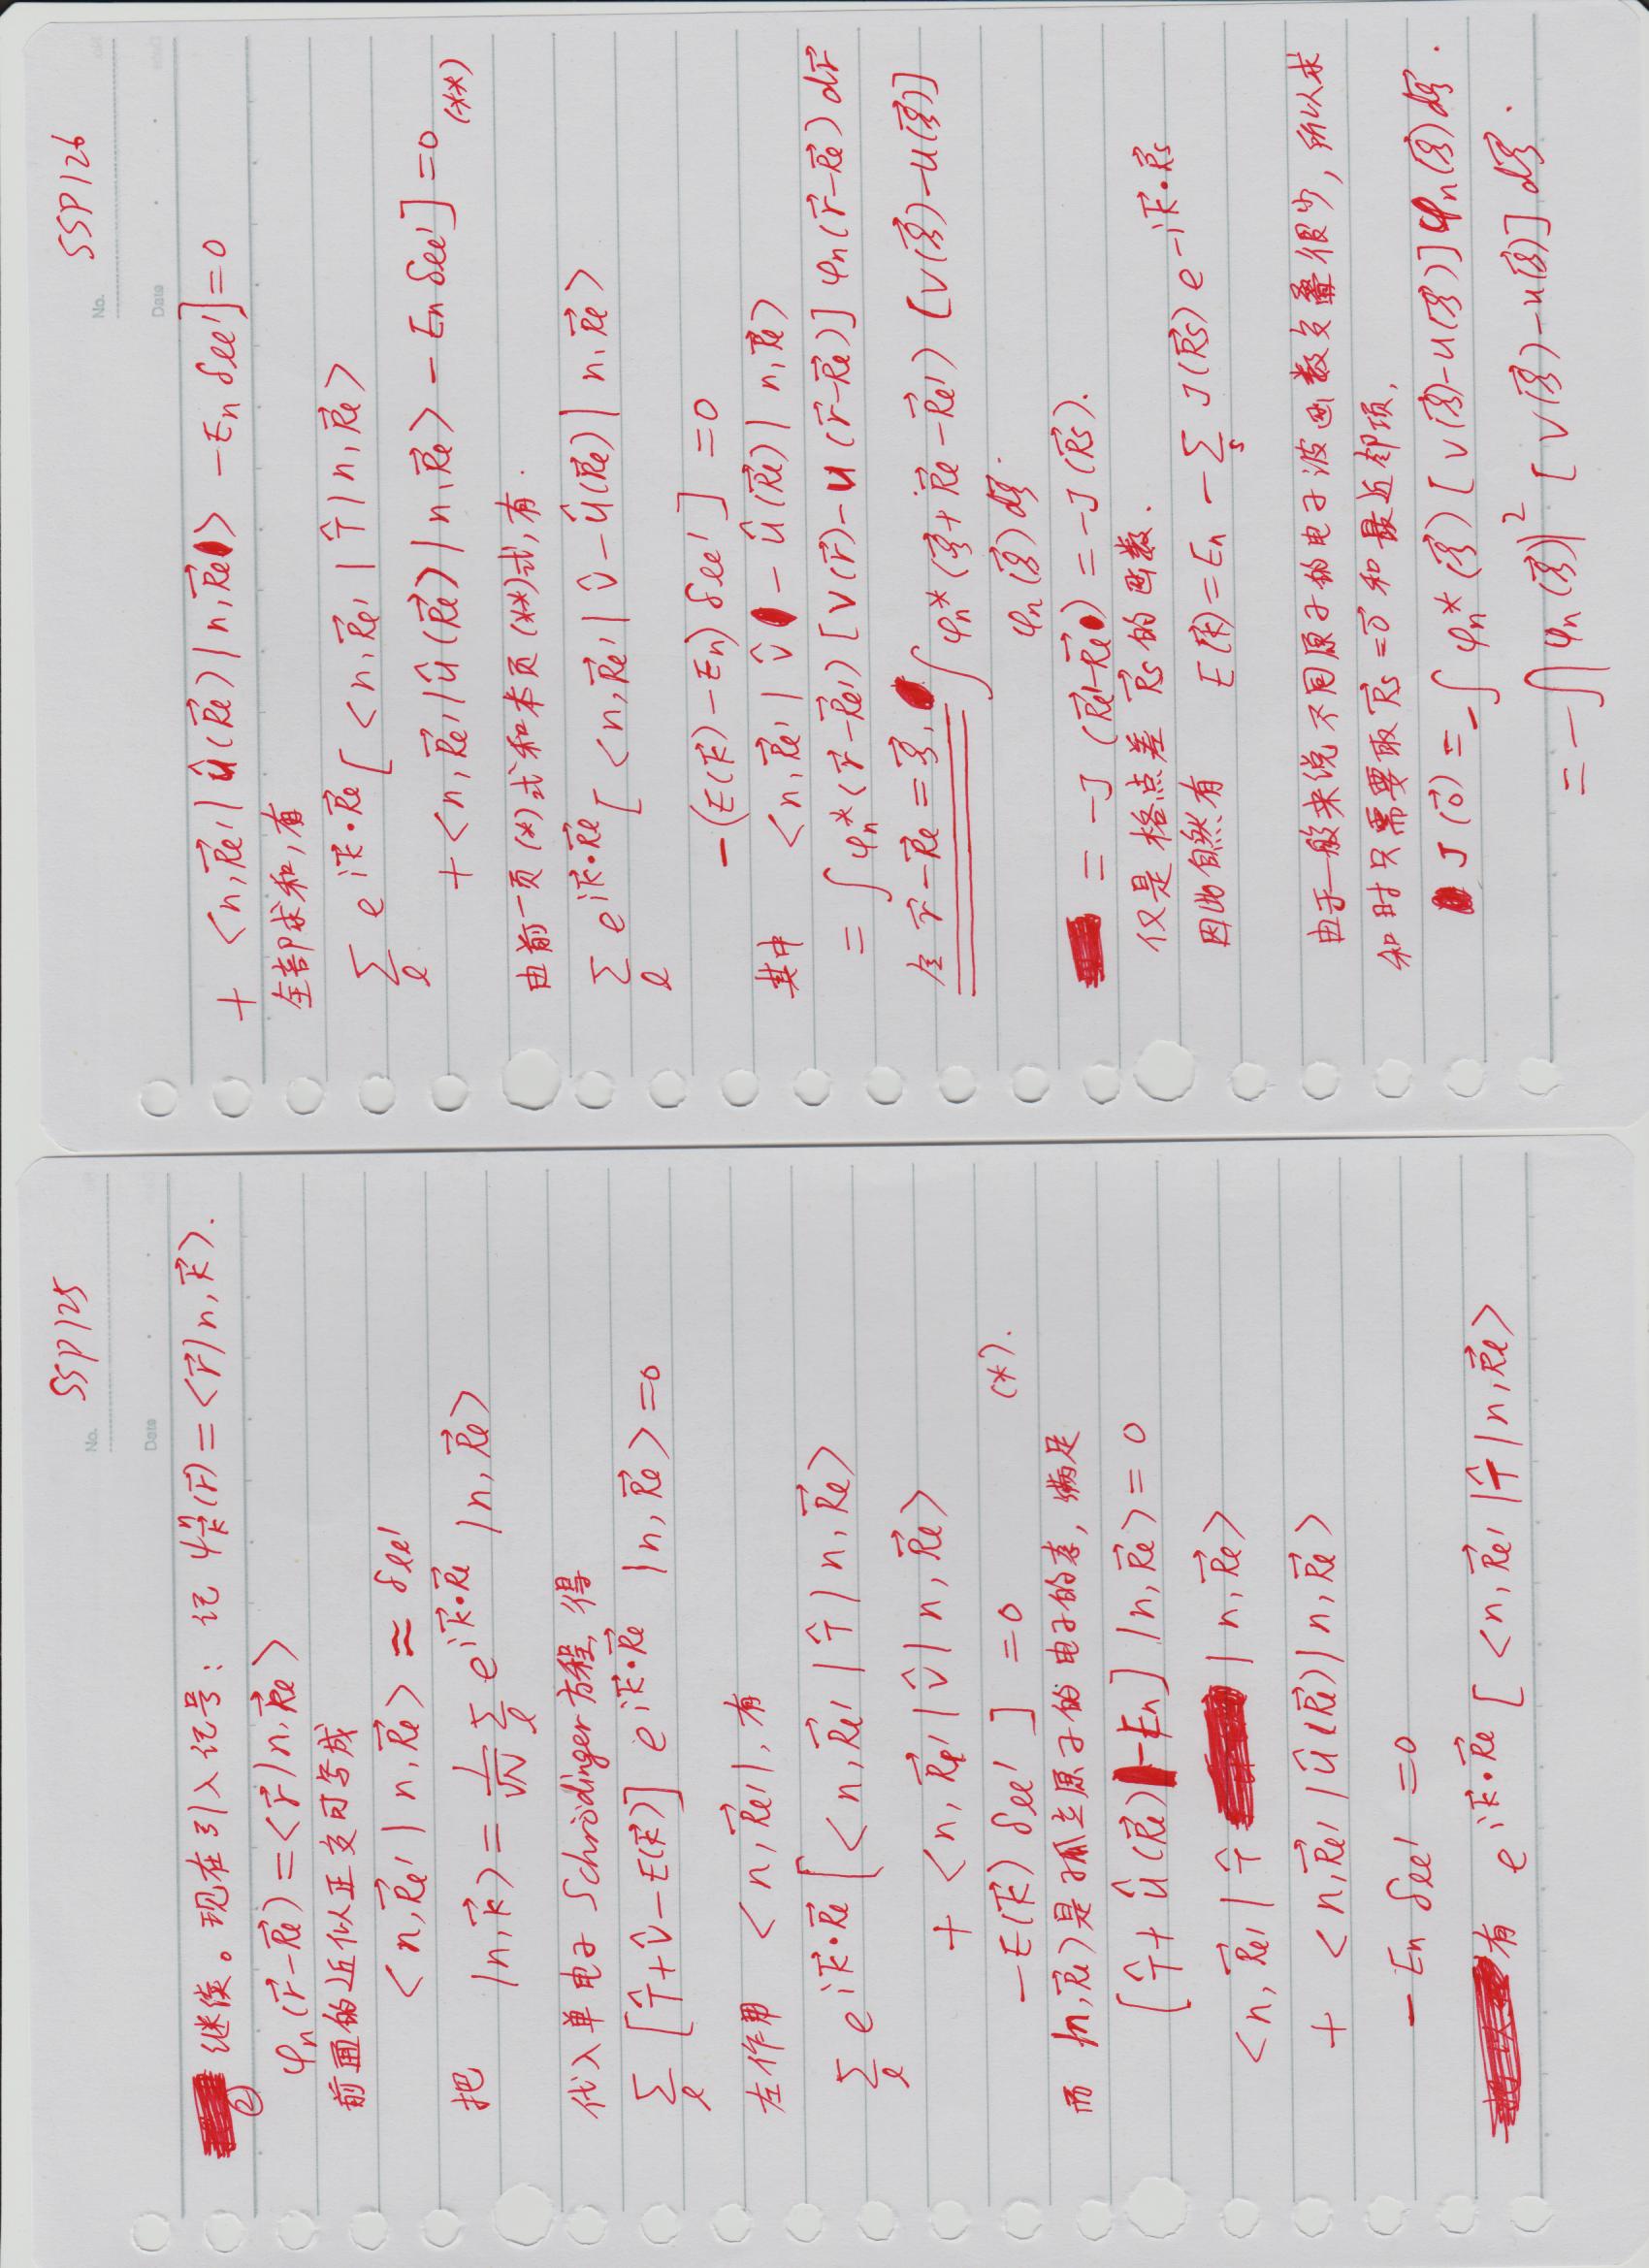 SSP125
No.
Date
② 继续。现在引入记号: 记 ψ^n_k⃗(r⃗)=<r⃗|n,k⃗>.
φn(r⃗-R⃗l)=<r⃗|n,R⃗l>
前面的近似正交可写成
<n,R⃗l'|n,R⃗l>≈δll'
把 |n,k⃗>=1/√N Σ_l e^{ik⃗·R⃗l} |n,R⃗l>
代入单电子 Schrödinger 方程, 得
Σ_l [T̂+V̂-E(k⃗)] e^{ik⃗·R⃗l} |n,R⃗l>=0
左作用 <n,R⃗l'|, 有
Σ_l e^{ik⃗·R⃗l} [<n,R⃗l'|T̂|n,R⃗l>
+ <n,R⃗l'|V̂|n,R⃗l>
-E(k⃗) δll' ] =0 (*).
而 |n,R⃗l>是孤立原子的电子的态, 满足
[T̂+Û(R⃗l)-En] |n,R⃗l>=0
<n,R⃗l'|T̂ |n,R⃗l>
+ <n,R⃗l'|Û(R⃗l)|n,R⃗l>
- En δll' =0
有 e^{ik⃗·R⃗l} [<n,R⃗l'|T̂|n,R⃗l>
SSP126
No.
Date
+ <n,R⃗l'|Û(R⃗l)|n,R⃗l> -En δll']=0
全部求和, 有
Σ_l e^{ik⃗·R⃗l} [<n,R⃗l'|T̂|n,R⃗l>
+<n,R⃗l'|Û(R⃗l)|n,R⃗l> - En δll']=0 (**)
由前一页 (*)式和本页 (**)式, 有.
Σ_l e^{ik⃗·R⃗l} [<n,R⃗l'|V̂-Û(R⃗l)|n,R⃗l>
-(E(k⃗)-En) δll' ] =0
其中 <n,R⃗l'|V̂ -Û(R⃗l)|n,R⃗l>
= ∫φn*(r⃗-R⃗l') [V(r⃗)-U(r⃗-R⃗l)] φn(r⃗-R⃗l) dr⃗
令 r⃗-R⃗l=ξ⃗, ∫φn*(ξ⃗+R⃗l-R⃗l') [V(ξ⃗)-U(ξ⃗)]
φn(ξ⃗)dξ⃗.
= -J (R⃗l'-R⃗l) = -J(R⃗s).
仅是格点差 R⃗s 的函数.
因此自然有 E(k⃗)=En - Σ_s J(R⃗s) e^{-ik⃗·R⃗s}
由于一般来说不同原子的电子波函数交叠很少, 所以求
和时只需要取 R⃗s=0⃗ 和最近邻项,
J(0⃗) = -∫ φn*(ξ⃗) [V(ξ⃗)-U(ξ⃗)] φn(ξ⃗)dξ⃗.
= -∫|φn(ξ⃗)|² [V(ξ⃗)-U(ξ⃗)] dξ⃗.